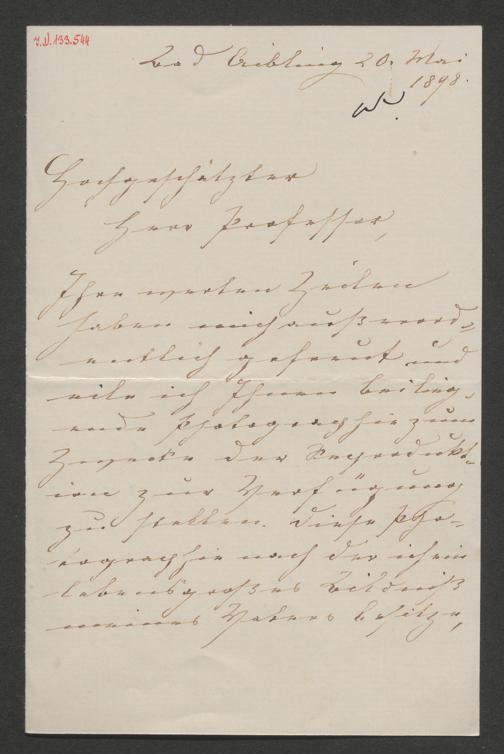 I.N. 133.544
Bad Aibling 20. Mai
1898.
Hochgeschätzter
Herr Professor,
Ihre werten Zeilen
haben mich außerord-
entlich gefreut und
eile ich Ihnen beilieg-
ende Photographie zum
Zwecke der Reprodukt-
ion zur Verfügung
zu stellen. Diese Pho-
tographie nach der ich ein
lebensgroßes Bildniß
meines Vaters besitze,